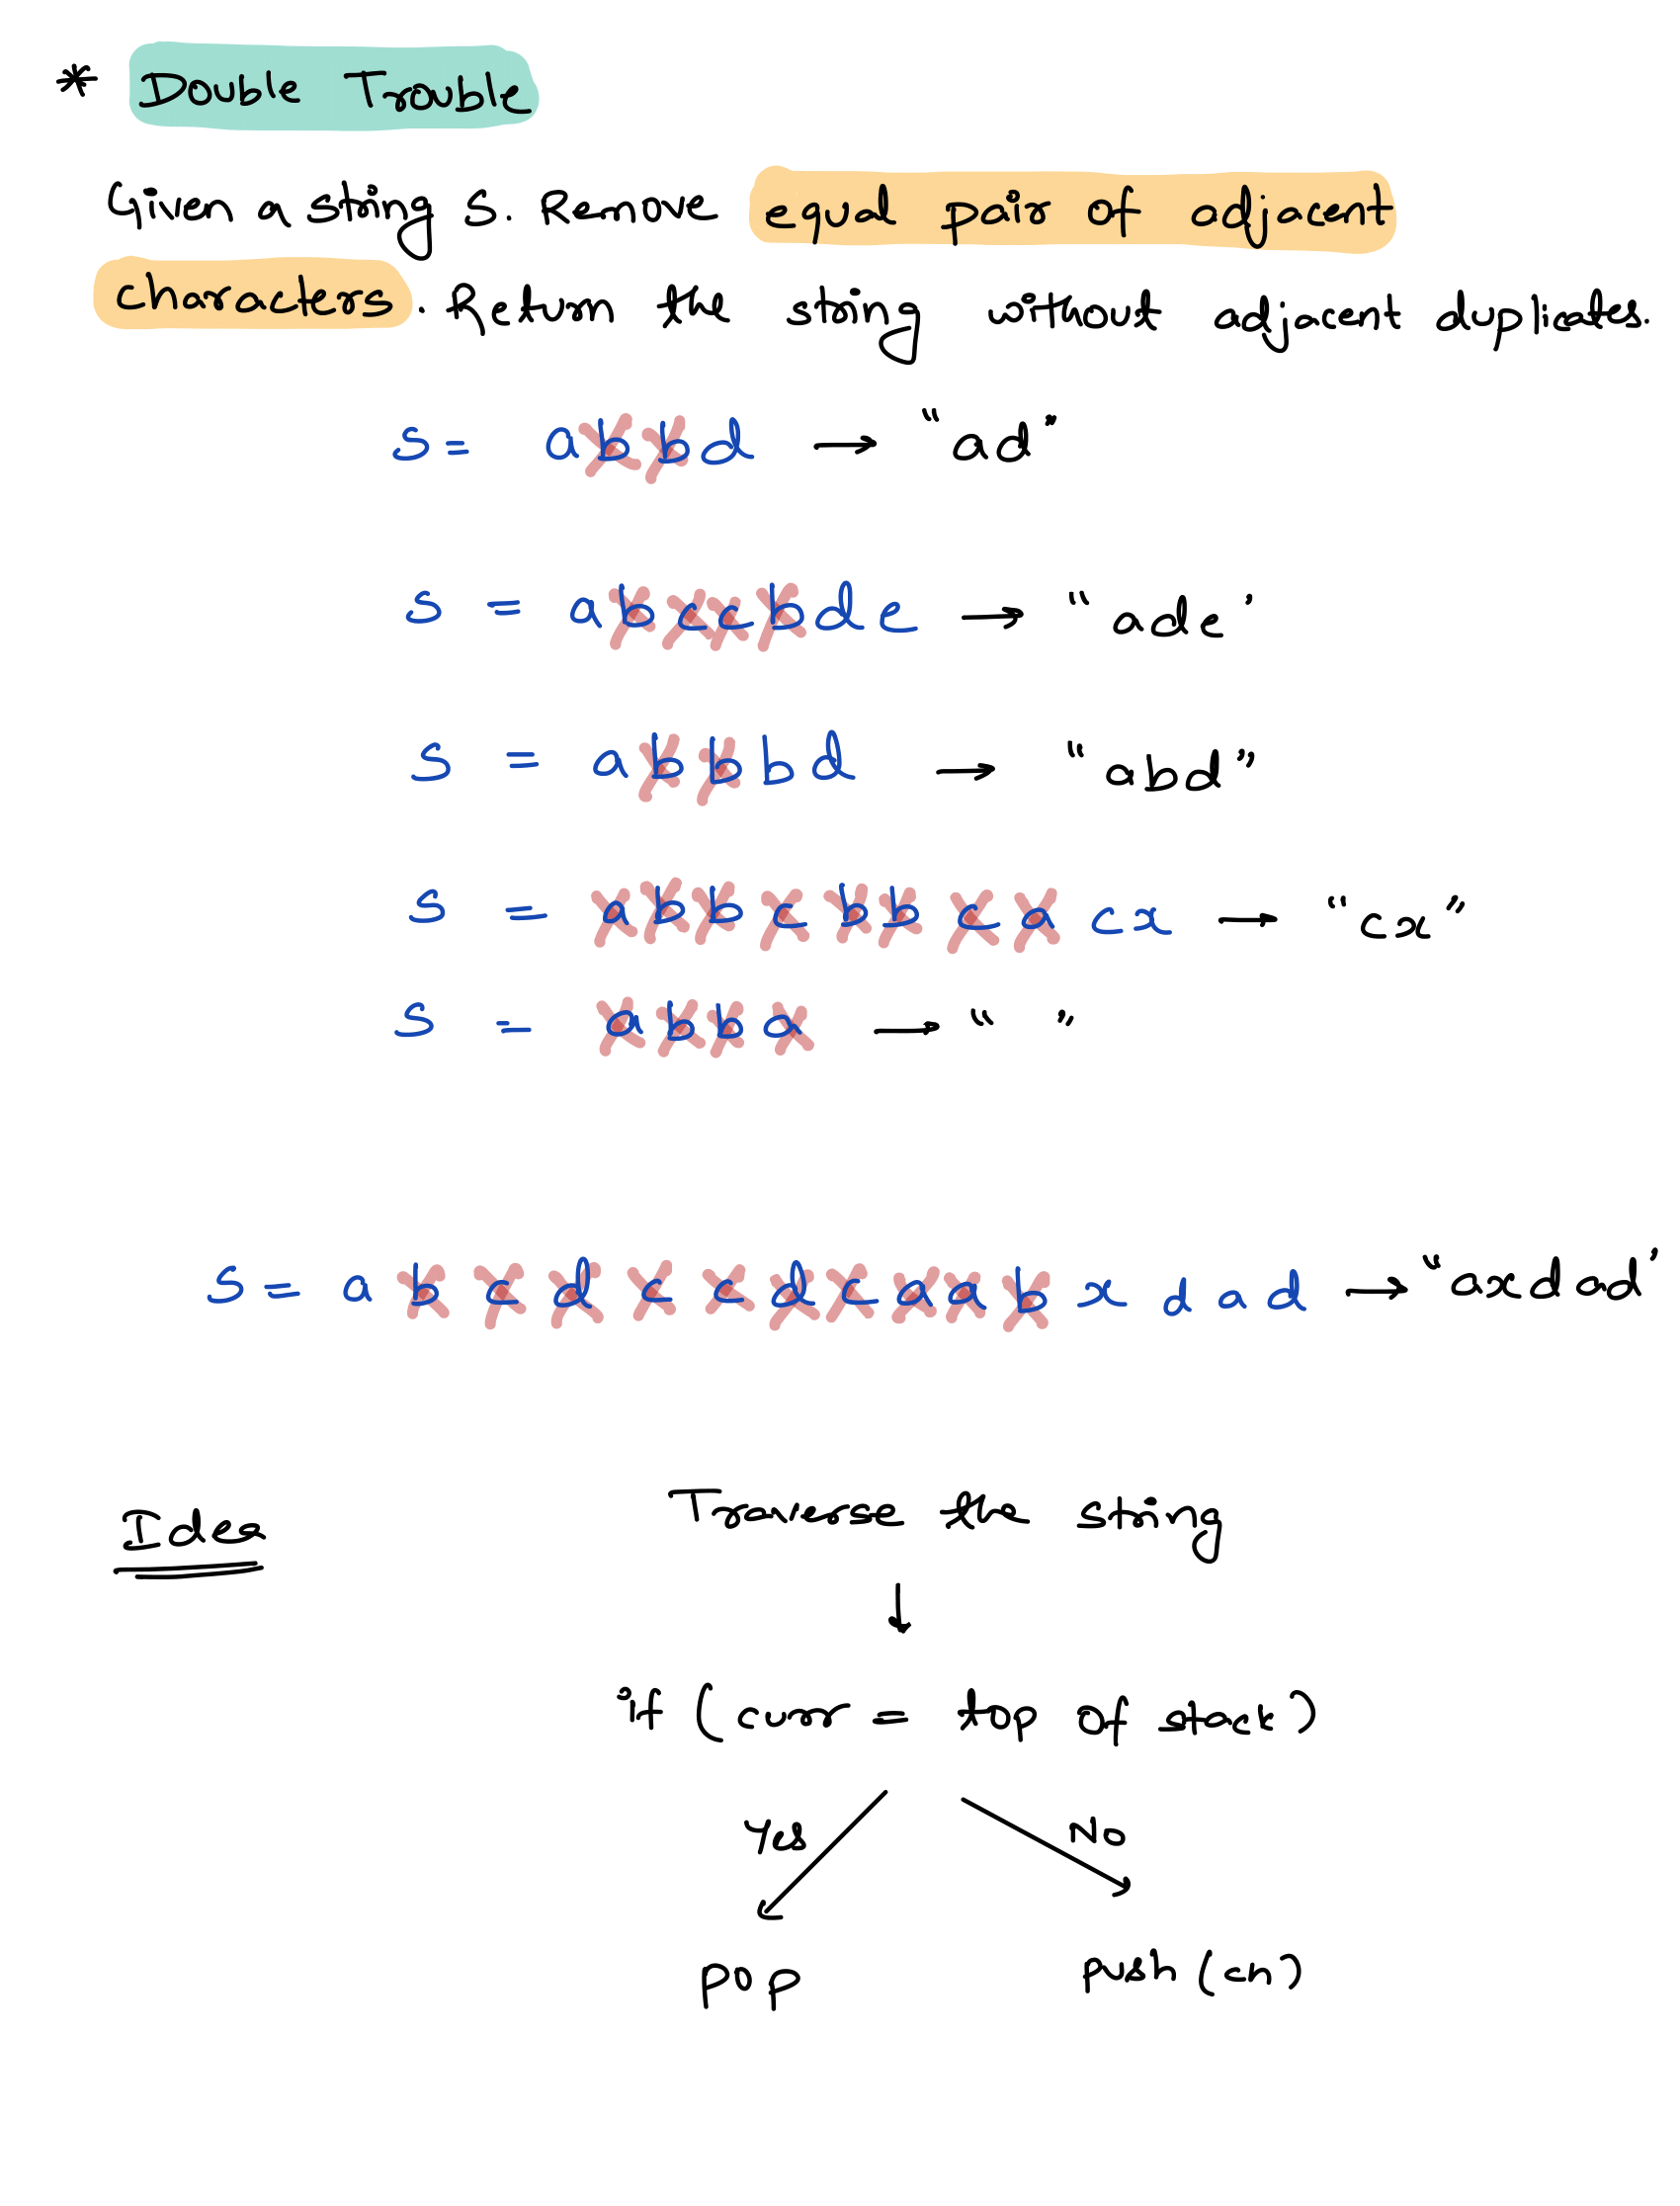 * Double Trouble
Given a sting S. Remove equal pair of adjacent
characters. Return the string without adjacent duplicates.
S = abbd → "ad"
S = abccbde → "ade"
S = abbbd → "abd"
S = abbcbbcacx → "cx"
S = abba → " "
S = abcdccdcaabxdad → "axdad"
Idea
Traverse the string
↓
if (curr = top of stack)
Yes No
pop push (ch)